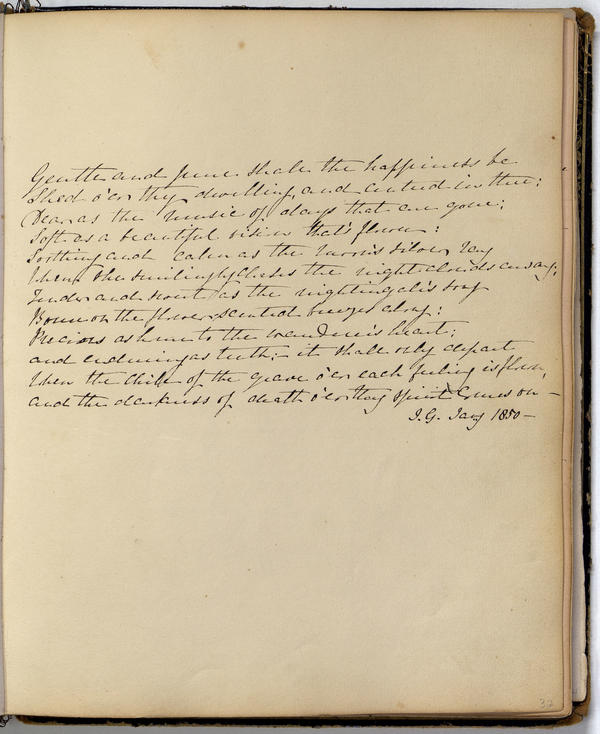 Gentle and pure shall the happiness be
Shed o'er thy dwelling, and centred in thee;
Dear as the music of days that are gone;
Soft as a beautiful vision that's flown:
Soothing and calm as the moon's silver ray
When she smilingly chases the night clouds away;
Tender and sweet as the nightingale's song
Borne on the flower-scented breezes along;
Precious as home to the wanderer's heart;
and enduring as truth;- it shall only depart
When the chill of the grave o'er each feeling is flown,
and the darkness of death o'er thy spirit comes on -
J.G. Jany 1850 -
32